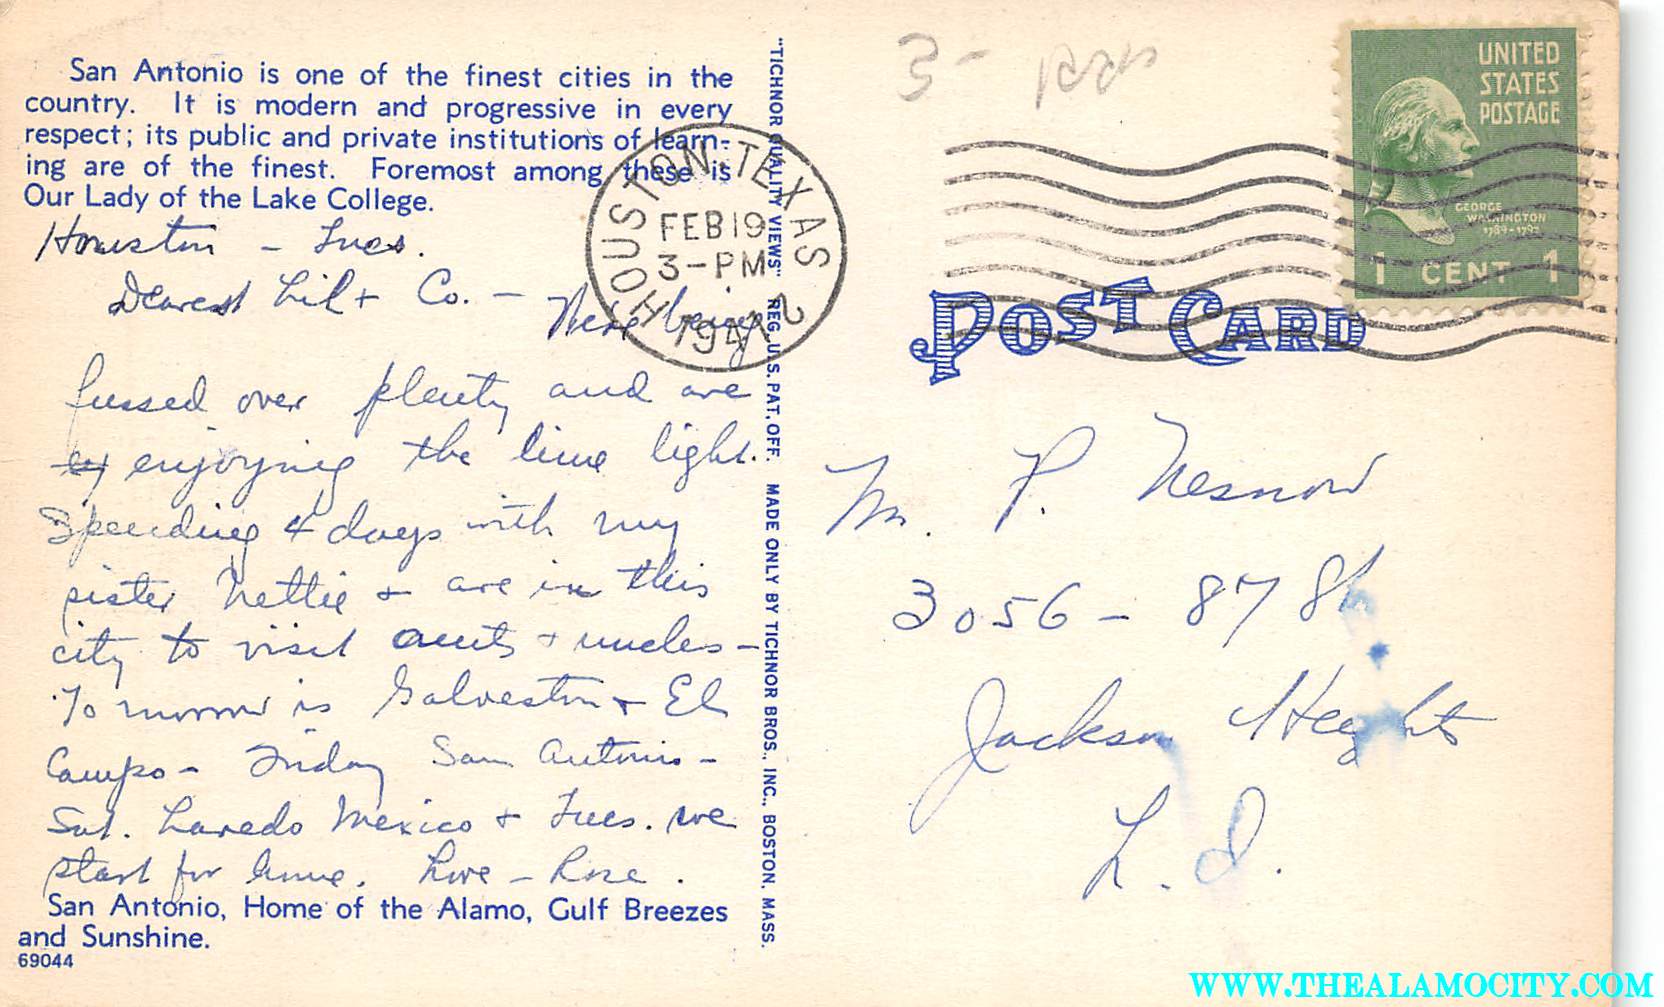 San Antonio is one of the finest cities in the
country. It is modern and progressive in every
respect; its public and private institutions of learn-
ing are of the finest. Foremost among these is
Our Lady of the Lake College.
Houston - Tues.
Dearest Lil + Co. -
Were being
fussed over plenty and are
enjoying the lime light.
Spending 4 days with my
sister Nettie + are in this
city to visit aunts + uncles -
Tomorrow is Galveston + El
Campo - Friday San Antonio -
Sat. Laredo Mexico + Tues. we
start for home. Love - Rose.
San Antonio, Home of the Alamo, Gulf Breezes
and Sunshine.
69044
"TICHNOR QUALITY VIEWS" REG. U.S. PAT. OFF. MADE ONLY BY TICHNOR BROS., INC., BOSTON, MASS.
HOUSTON, TEXAS 2
FEB 19
3-PM
1947
3-
UNITED
STATES
POSTAGE
GEORGE
WASHINGTON
1789-1797
1 CENT 1
POST CARD
M. P. Nesnow
3056 - 87 St
Jackson Heights
L. I.
WWW.THEALAMOCITY.COM